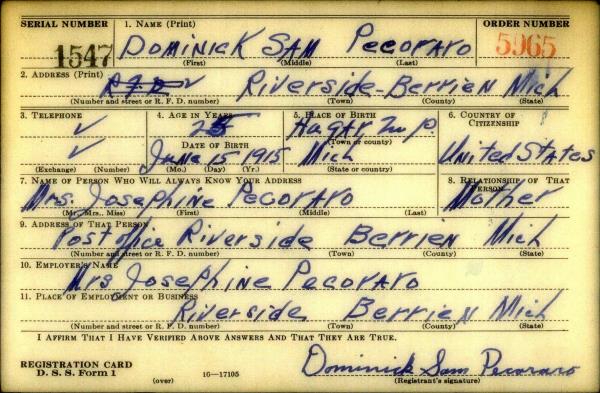 SERIAL NUMBER 1. NAME (Print) ORDER NUMBER
1547 DOMINICK SAM PECORARO 5965
(First) (Middle) (Last)
2. ADDRESS (Print)
RFD Riverside-Berrien Mich
(Number and street or R. F. D. number) (Town) (County) (State)
3. TELEPHONE 4. AGE IN YEARS 5. PLACE OF BIRTH 6. COUNTRY OF CITIZENSHIP
✓ 25 Hagar Twp.
DATE OF BIRTH (Town or county)
✓ June 15 1915 Mich United States
(Exchange) (Number) (Mo.) (Day) (Yr.) (State or country)
7. NAME OF PERSON WHO WILL ALWAYS KNOW YOUR ADDRESS 8. RELATIONSHIP OF THAT PERSON
Mrs. Josephine Pecoraro Mother
(Mr., Mrs., Miss) (First) (Middle) (Last)
9. ADDRESS OF THAT PERSON
Post office Riverside Berrien Mich
(Number and street or R. F. D. number) (Town) (County) (State)
10. EMPLOYER'S NAME
Mrs Josephine Pecoraro
11. PLACE OF EMPLOYMENT OR BUSINESS
Riverside Berrien Mich
(Number and street or R. F. D. number) (Town) (County) (State)
I AFFIRM THAT I HAVE VERIFIED ABOVE ANSWERS AND THAT THEY ARE TRUE.
REGISTRATION CARD
D. S. S. Form 1 (over) 16-17105 Dominick Sam Pecoraro
(Registrant's signature)